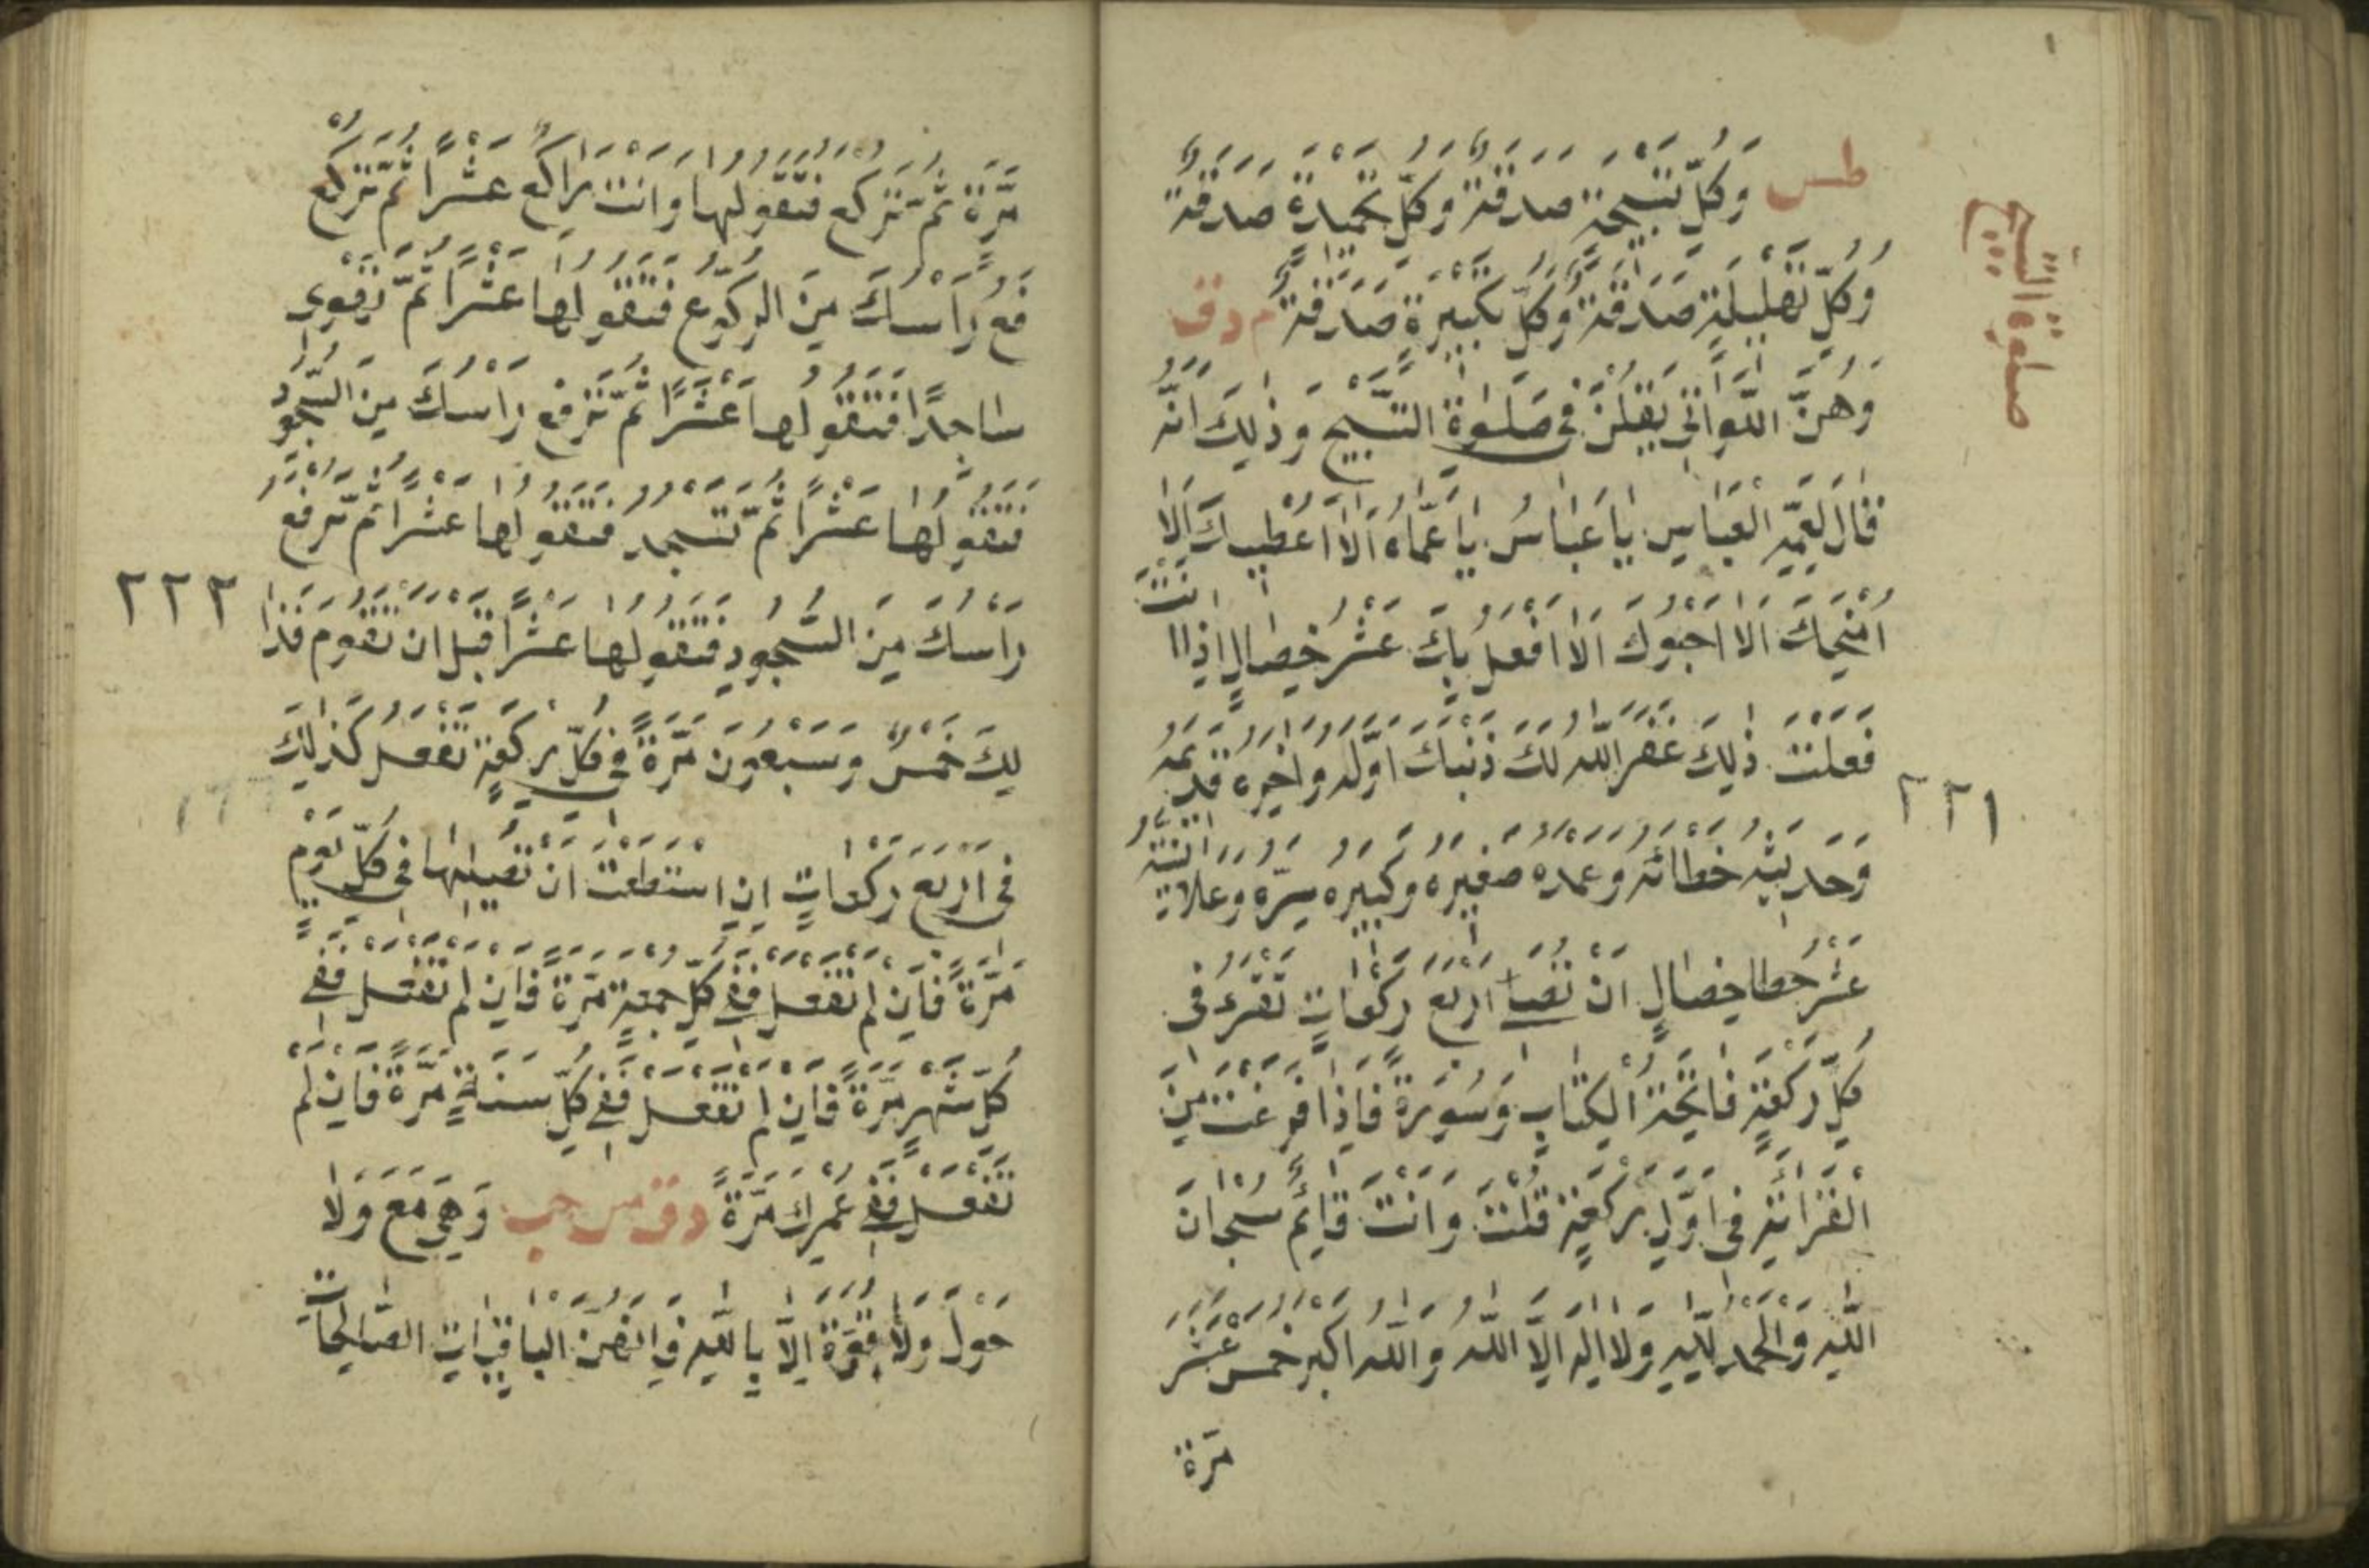 صلوة التسبيح
طس وَكُلُّ تَسْبِيْحَةٍ صَدَقَةٌ وَكُلُّ تَحْمِيْدَةٍ صَدَقَةٌ
وَكُلُّ تَهْلِيْلَةٍ صَدَقَةٌ وَكُلُّ تَكْبِيْرَةٍ صَدَقَةٌ م د ق
وَهُنَّ اللَّوَاتِي يَقُلْنَ فِي صَلٰوةِ التَّسْبِيْحِ وَذٰلِكَ اَنَّهُ
قَالَ لِعَمِّهِ الْعَبَّاسِ يَا عَبَّاسُ يَا عَمَّاهُ اَلَا اُعْطِيْكَ اَلَا
اَمْنَحُكَ اَلَا اَحْبُوْكَ اَلَا اَفْعَلُ بِكَ عَشْرَ خِصَالٍ اِذَا اانت
فَعَلْتَ ذٰلِكَ غَفَرَ اللّٰهُ لَكَ ذَنْبَكَ اَوَّلَهُ وَاٰخِرَهُ قَدِيْمَهُ
٢٢١
وَحَدِيْثَهُ خَطَائَهُ وَعَمْدَهُ صَغِيْرَهُ وَكَبِيْرَهُ سِرَّهُ وَعَلَانِيَتَهُ
عَشْرُ خصا خِصَالٍ اَنْ تُصَلِّيَ اَرْبَعَ رَكَعَاتٍ تَقْرَءُ فِي
كُلِّ رَكْعَةٍ فَاتِحَةَ الْكِتَابِ وَسُوْرَةً فَاِذَا فَرَغْتَ مِنَ
الْقِرَائَةِ فِي اَوَّلِ رَكْعَةٍ قُلْتَ وَاَنْتَ قَائِمٌ سُبْحَانَ
اللّٰهِ وَالْحَمْدُ لِلّٰهِ وَلَا اِلٰهَ اِلَّا اللّٰهُ وَاللّٰهُ اَكْبَرُ خَمْسَ عَشَرَ
مرة
مَرَّةً ثُمَّ تَرْكَعُ فَتَقُوْلُهَا وَاَنْتَ رَاكِعٌ عَشْرًا ثُمَّ تَرْكَعُ
فَعُ رَاْسَكَ مِنَ الرُّكُوْعِ فَتَقُوْلُهَا عَشْرًا ثُمَّ تَهْوِي
سَاجِدًا فَتَقُوْلُهَا عَشْرًا ثُمَّ تَرْفَعُ رَاْسَكَ مِنَ السُّجُوْدِ
فَتَقُوْلُهَا عَشْرًا ثُمَّ تَسْجُدُ فَتَقُوْلُهَا عَشْرًا ثُمَّ تَرْفَعُ
رَاْسَكَ مِنَ السُّجُوْدِ فَتَقُوْلُهَا عَشْرًا قَبْلَ اَنْ تَقُوْمَ فَذَا
٢٢٢
لِكَ خَمْسٌ وَسَبْعُوْنَ مَرَّةً فِي كُلِّ رَكْعَةٍ تَفْعَلُ كَذٰلِكَ
فِي اَرْبَعِ رَكَعَاتٍ اِنِ اسْتَطَعْتَ اَنْ تُصَلِّيَهَا فِي كُلِّ يَوْمٍ
مَرَّةً فَاِنْ لَمْ تَفْعَلْ فَفِي كُلِّ جُمُعَةٍ مَرَّةً فَاِنْ لَمْ تَفْعَلْ فَفِي
كُلِّ شَهْرٍ مَرَّةً فَاِنْ لَمْ تَفْعَلْ فَفِي كُلِّ سَنَةٍ مَرَّةً فَاِنْ لَمْ
تَفْعَلْ فَفِي عُمْرِكَ مَرَّةً د ق مس حب وَهِيَ مَعَ وَلَا
حَوْلَ وَلَا قُوَّةَ اِلَّا بِاللّٰهِ فَاِنَّهُنَّ الْبَاقِيَاتِ الصَّالِحَاتِ